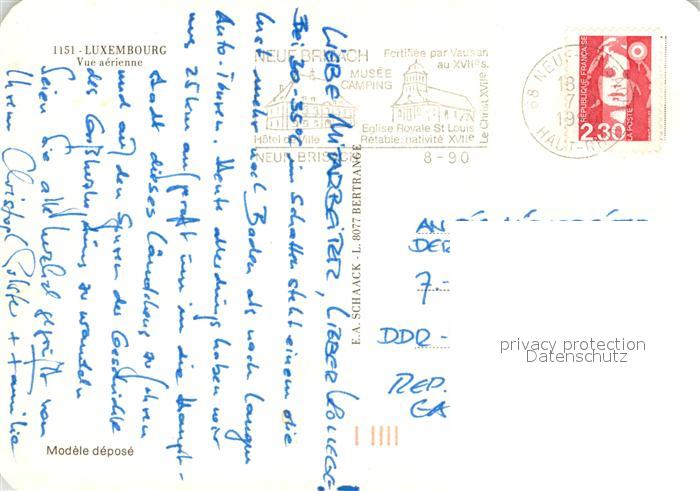 1151 - LUXEMBOURG
Vue aérienne
LIEBE MITARBEITER, LIEBER KOLLEGE!
Bei 30-35°C im Schatten steht einem die
Lust mehr nach Baden als nach langen
Auto-Touren. Heute allerdings haben wir
uns 25 km aufgerafft um in die Haupt-
stadt dieses Ländchens zu fahren
und auf den Spuren der Geschichte
des zu wandeln
Seien Sie alle herzlich gegrüßt von
Ihrem Christoph + Familie
Modèle déposé
E.A. SCHAACK - L. 8077 BERTRANGE
NEUF BRISACH
MUSÉE
CAMPING
Hôtel de Ville
NEUF BRISACH
Fortifiée par Vauban
au XVIIes.
Eglise Royale St Louis
Retable: nativité XVIIe
Le Christ XVIIe
8-90
68 NEUF
18
7
19
HAUT-RHIN
REPUBLIQUE FRANÇAISE
LA POSTE
2,30
AN
DER
7-
DDR-
REP.
privacy protection
Datenschutz